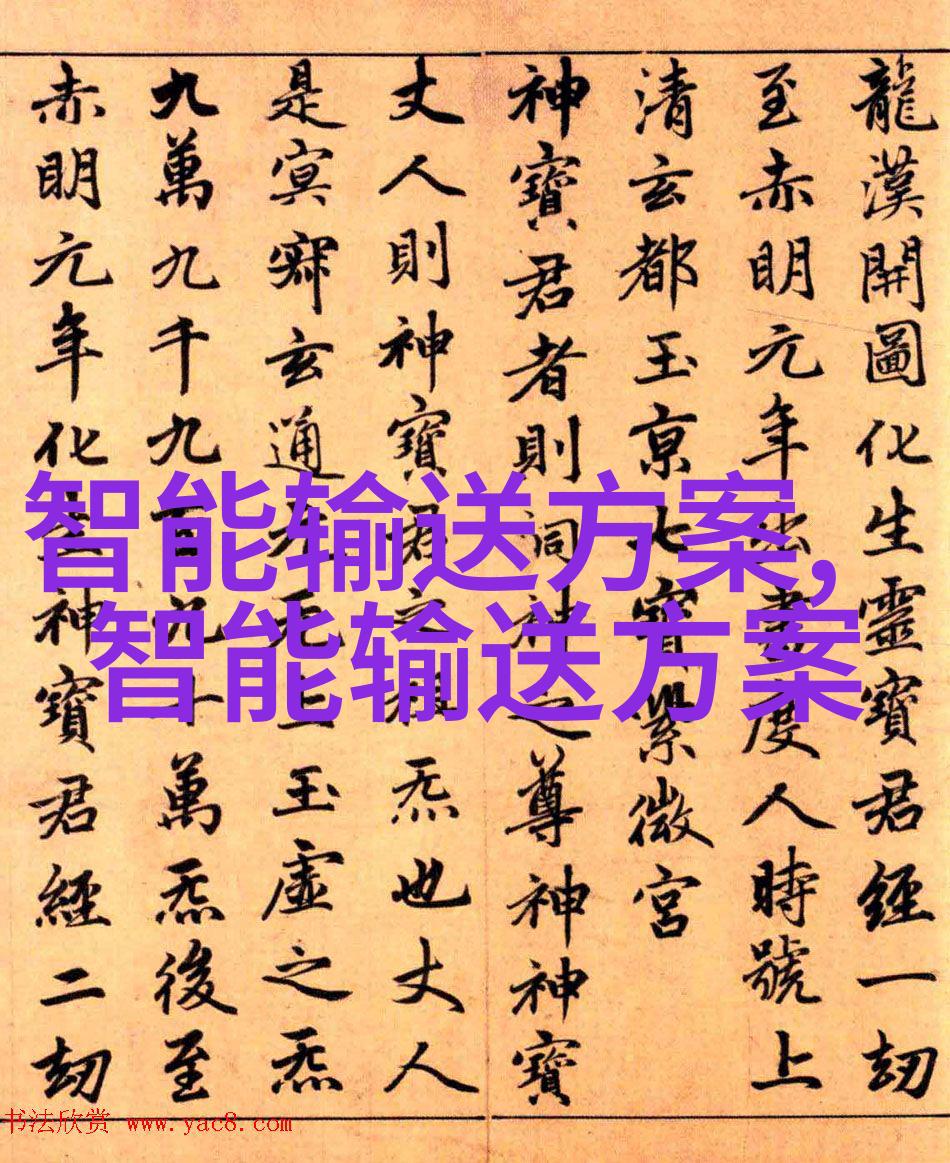 龍漢開圖化生靈寶君經一劫
至赤明元年出書度人時號上
清玄都玉京七寶紫微宮
神寶君者則洞神之尊神神寶
丈人則神寶君之祖炁也丈人
是冥寂玄通元无上玉虛之炁
九萬九千九百九十萬炁後至
赤明元年化生神寶君經二劫
智能输送方案,
智能输送方案
书法欣赏 www.yac8.com